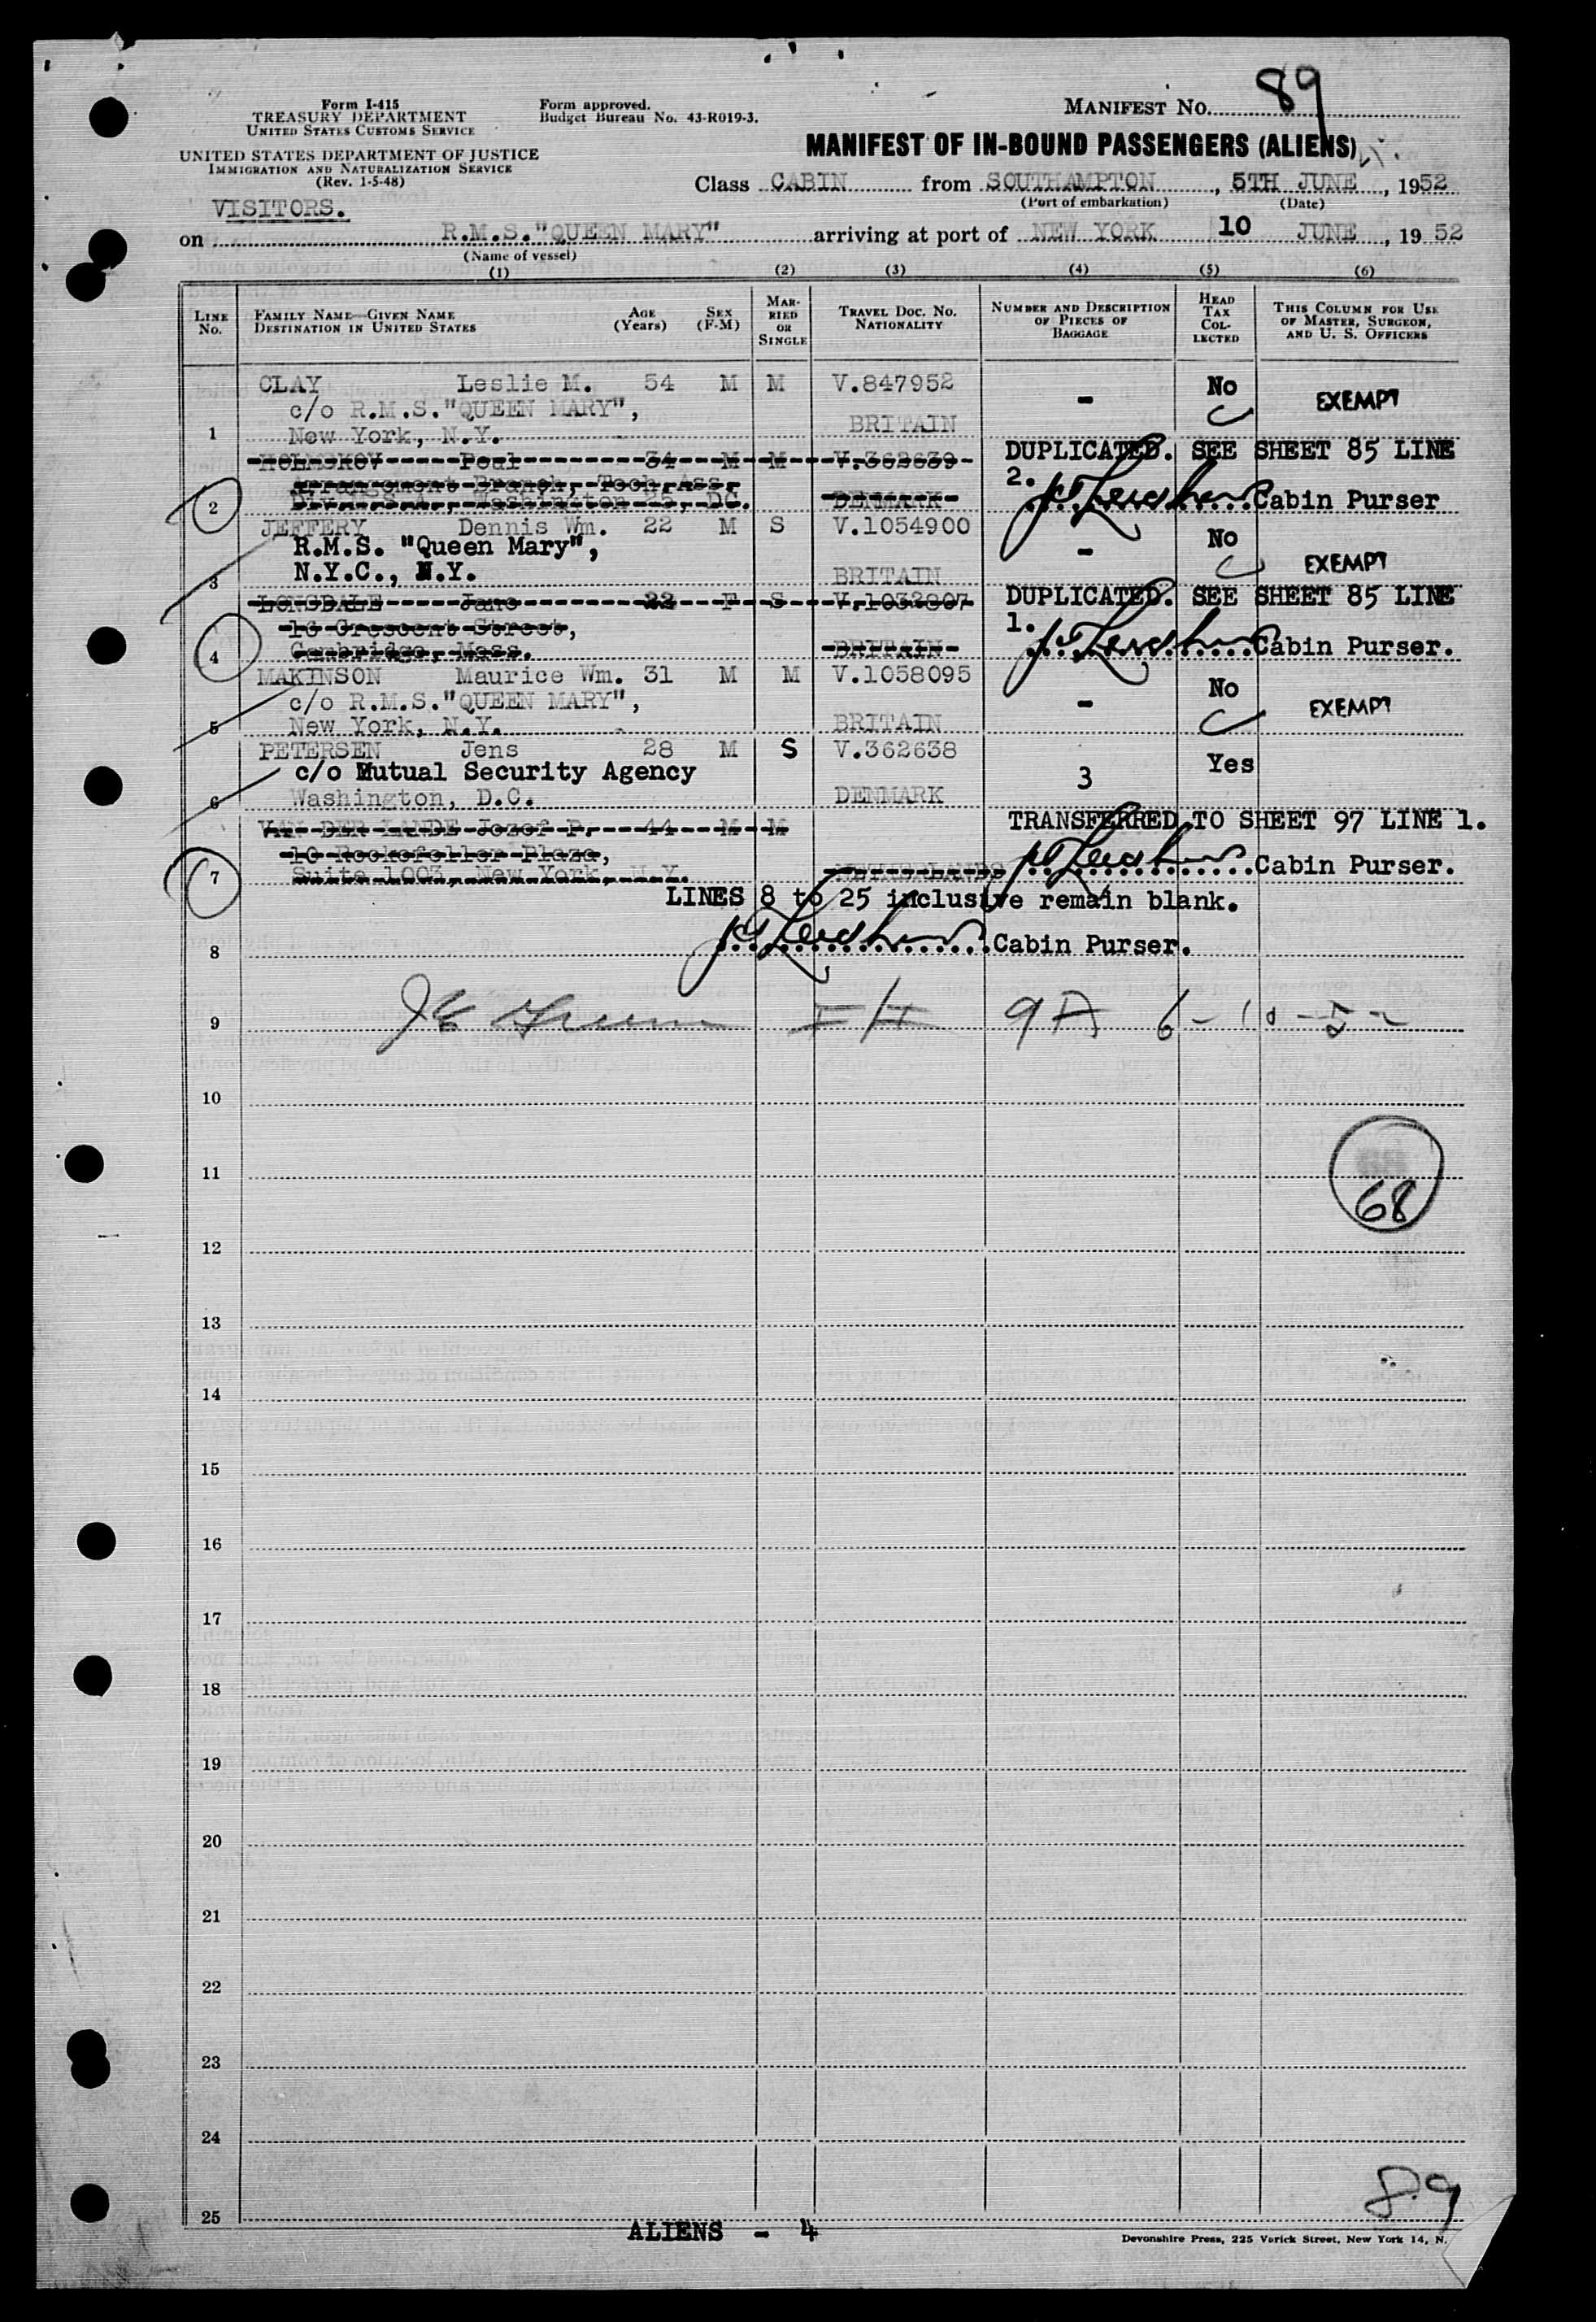 Form I-415
TREASURY DEPARTMENT
UNITED STATES CUSTOMS SERVICE
UNITED STATES DEPARTMENT OF JUSTICE
IMMIGRATION AND NATURALIZATION SERVICE
(Rev. 1-5-48)
Form approved.
Budget Bureau No. 43-R019-3.
MANIFEST NO. 89
MANIFEST OF IN-BOUND PASSENGERS (ALIENS)
Class CABIN from SOUTHAMPTON, 5TH JUNE, 1952
(Port of embarkation) (Date)
VISITORS.
on R.M.S."QUEEN MARY" arriving at port of NEW YORK 10 JUNE, 1952
(Name of vessel)
(1) (2) (3) (4) (5) (6)
LINE No. FAMILY NAME—GIVEN NAME DESTINATION IN UNITED STATES AGE (Years) SEX (F-M) MARRIED OR SINGLE TRAVEL DOC. NO. NATIONALITY NUMBER AND DESCRIPTION OF PIECES OF BAGGAGE HEAD TAX COLLECTED THIS COLUMN FOR USE OF MASTER, SURGEON, AND U. S. OFFICERS
CLAY Leslie M. 54 M M V.847952 - No EXEMPT
c/o R.M.S."QUEEN MARY",
1 New York, N.Y. BRITAIN
HOLMSKOV Poul 34 M M V.362639 DUPLICATED. SEE SHEET 85 LINE
Arrangement Branch, Tech.Ass. 2.
2 Div.M.S.A., Washington 25, DC. DENMARK Cabin Purser
JEFFERY Dennis Wm. 22 M S V.1054900 - No EXEMPT
R.M.S. "Queen Mary",
3 N.Y.C., N.Y. BRITAIN
LONGDALE Jane 22 F S V.1032807 DUPLICATED. SEE SHEET 85 LINE
16 Crescent Street, 1.
4 Cambridge, Mass. BRITAIN Cabin Purser.
MAKINSON Maurice Wm. 31 M M V.1058095 - No EXEMPT
c/o R.M.S."QUEEN MARY",
5 New York, N.Y. BRITAIN
PETERSEN Jens 28 M S V.362638 3 Yes
c/o Mutual Security Agency
6 Washington, D.C. DENMARK
VAN DER LANDE Jozef P. 44 M M TRANSFERRED TO SHEET 97 LINE 1.
10 Rockefeller Plaza,
7 Suite 1003, New York, N.Y. NETHERLANDS Cabin Purser.
LINES 8 to 25 inclusive remain blank.
8 Cabin Purser.
9 9A 6-10-52
10
11
68
12
13
14
15
16
17
18
19
20
21
22
23
24
25
89
ALIENS - 4
Devonshire Press, 225 Varick Street, New York 14, N.